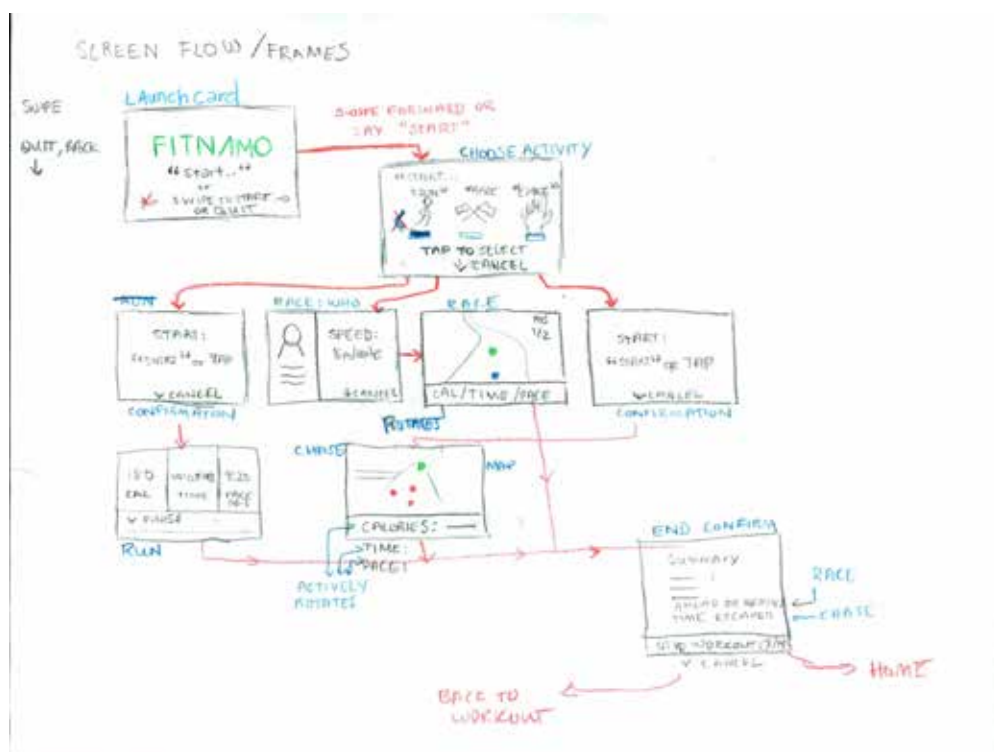 SCREEN FLOW/FRAMES
SWIPE
QUIT, BACK
Launch card
FITNAMO
"Start.."
or
SWIPE TO START
OR QUIT
SWIPE FORWARD OR
SAY "START"
CHOOSE ACTIVITY
"START...
"RUN" "RACE" "ESCAPE"
TAP TO SELECT
CANCEL
RUN
START:
"START" or TAP
CANCEL
CONFIRMATION
RACE: WHO
SPEED:
CANCEL
RACE
1/2
CAL/TIME/PACE
ROTATES
START:
"START" or TAP
CANCEL
CONFIRMATION
CAL TIME PACE
FINISH
RUN
CHASE
MAP
CALORIES:
TIME:
PACE:
ACTIVELY
ROTATES
END CONFIRM
Summary
AHEAD OR BEHIND
TIME ESCAPED
RACE
CHASE
END WORKOUT (Y/N)
CANCEL
HOME
BACK TO
WORKOUT